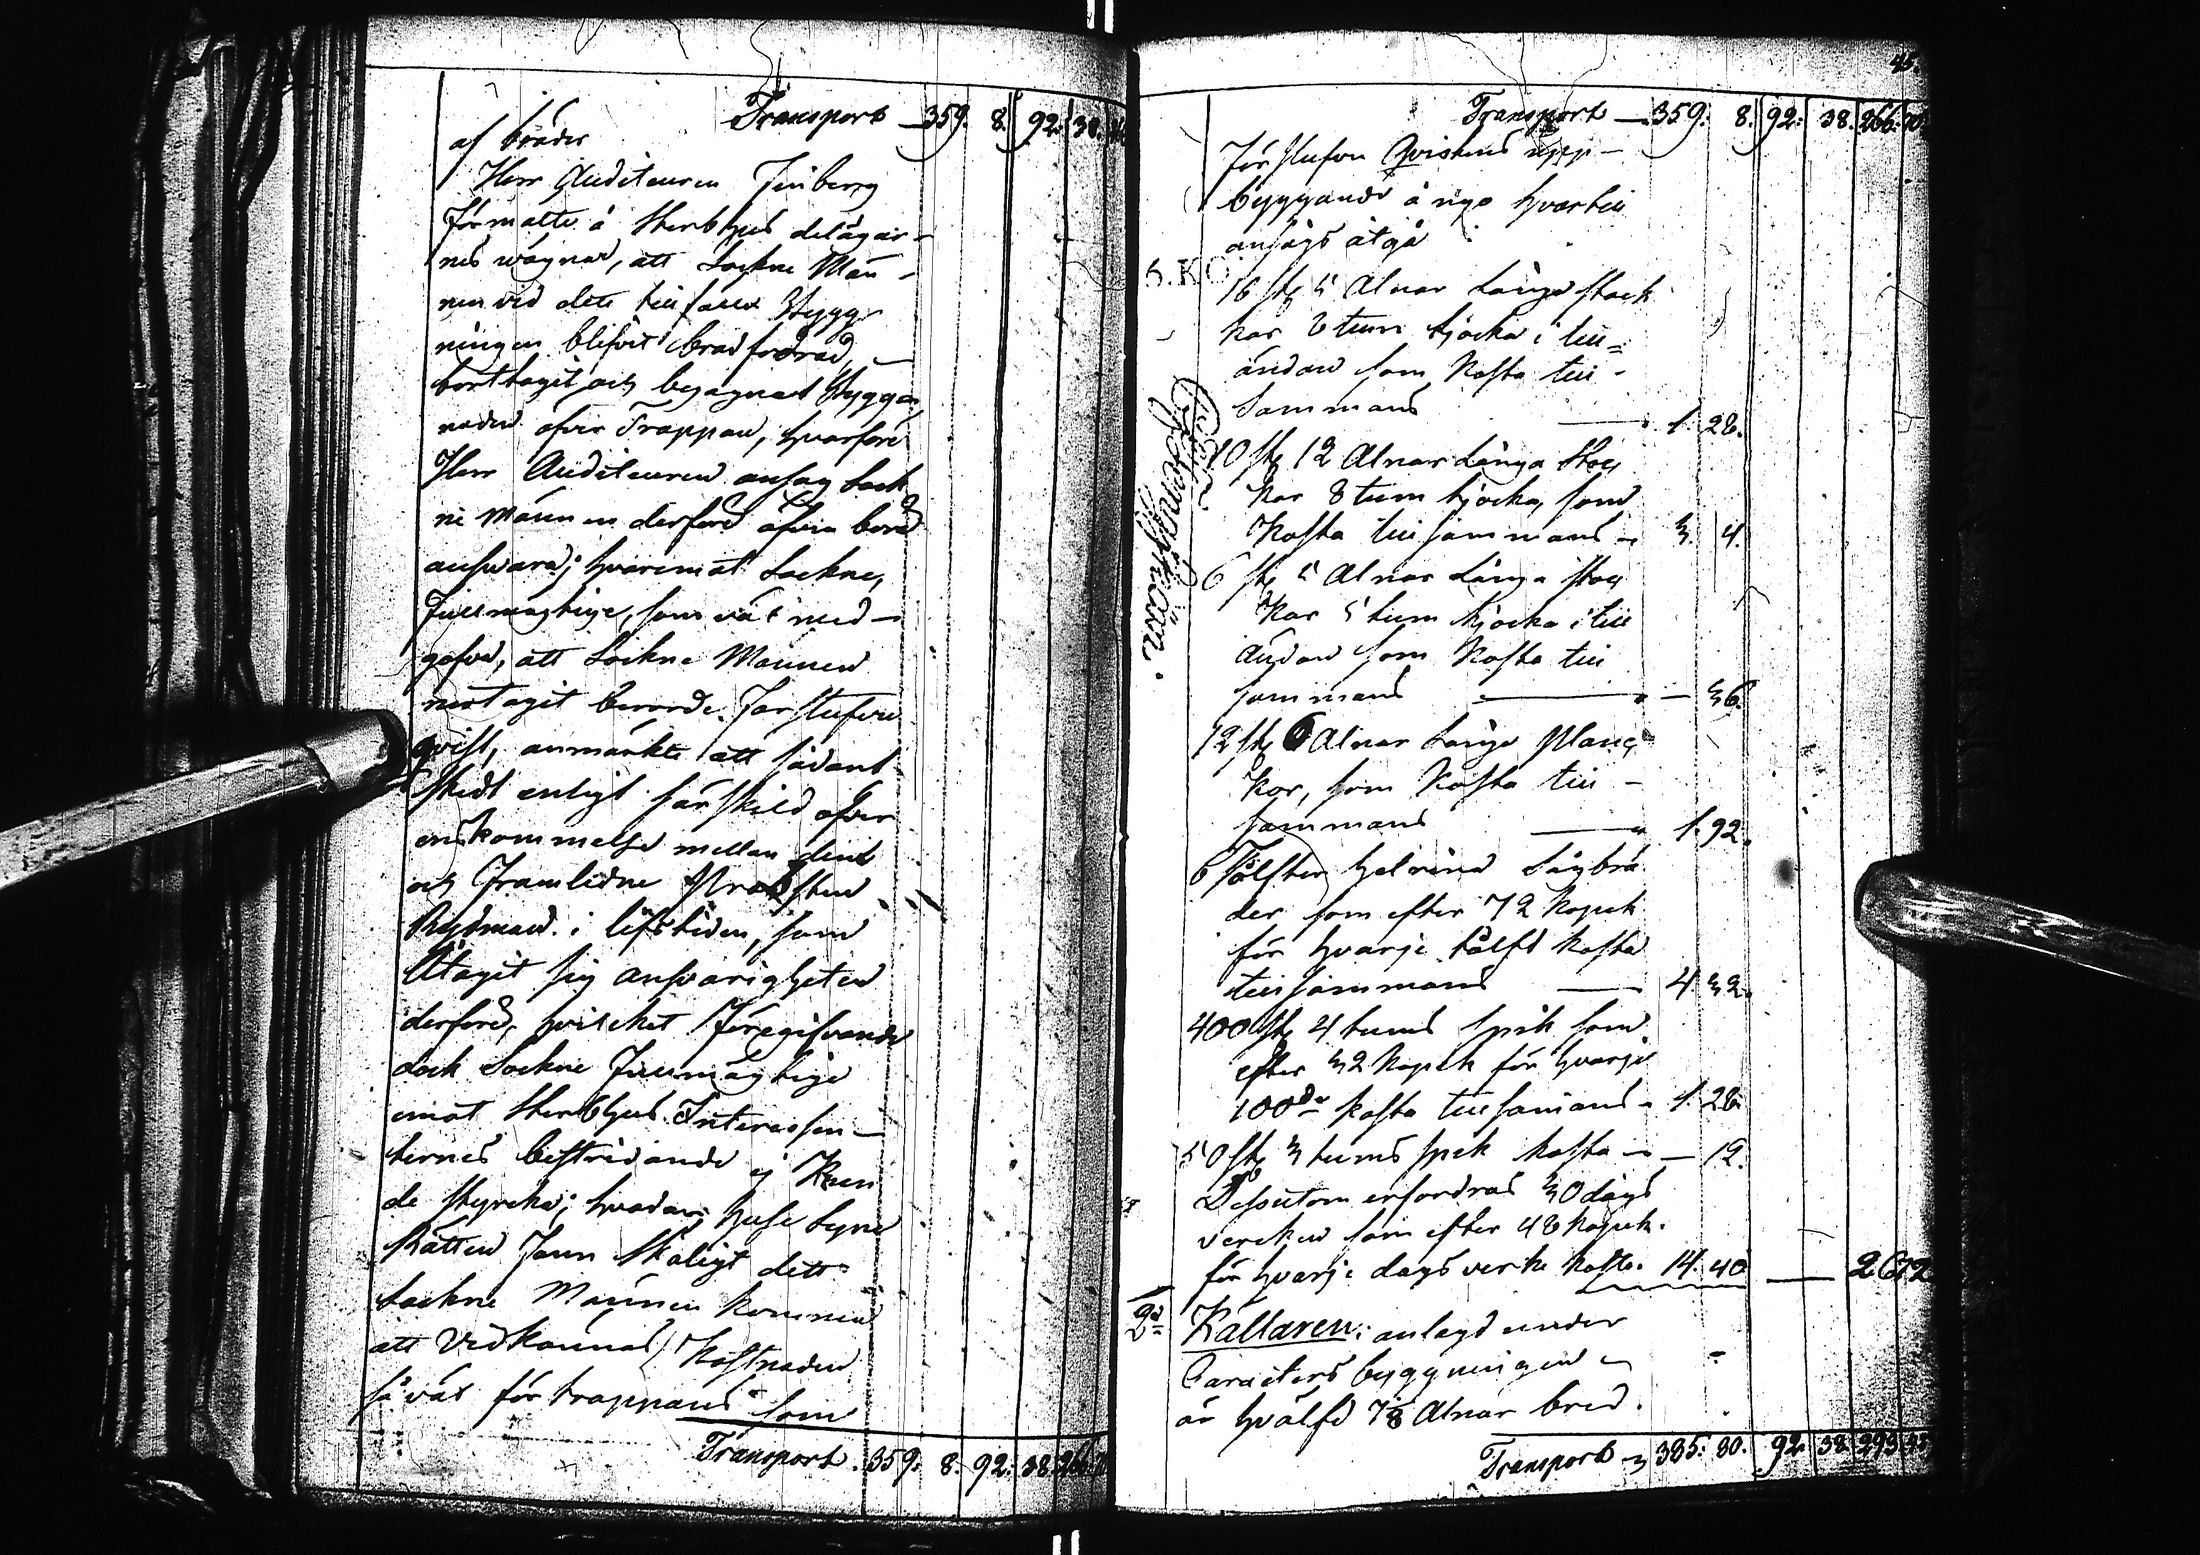 Transport — 359. 8. 92. 38.
af bräder
Herr Auditeuren
förmälte å Sterbhus delägar-
nes wägnar, att Sockne Män-
nen vid detta tillfälle Bygg-
ningen blifvit
borttagit och begagnat Bygga
naden öfver Trappan, hvarföre
Herr Auditeuren ansåg Sock
ne männen derföre äfven böra
ansvara; hvaremot Sockne
Fullmägtige, som väl med-
gofvo, att Sockne Männen
nertagit berörde Farstufvu
qvist, anmärkte att sådant
skedt enligt särskild öfver
enskommelse mellan dem
och Framlidne Prosten
i lifstiden, som
Åtagit sig ansvarigheten
derföre, hvilket föregifvande
dock Sockne Fullmägtige
emot Sterbhus Interessen-
ternes bestridande ej kun
de styrcka; hvadan Huse Syns
Rätten fann skäligt det
Sockne Männen kommer
att vidkännas Kostnaden
så väl för trappans som
Transport. 359. 8. 92. 38. 266.
45.
Transport — 359. 8. 92. 38. 266. 70.
Förstufvu Qvistens upp-
byggande å nyo hvartill
ansågs åtgå
16 st 5 Alnar Långa stock
kar 6 tum tjocka i lill-
ändan som Kosta till-
sammans — 1. 28.
10 st 12 Alnar Långa Stoc
kar 8 tum tjocka, som
Kosta tillsammans — 3. 4.
6 st 5 Alnar Långa stoc
kar 5 tum tjocka i lill
ändan som Kosta till
sammans — — 36.
12 st 6 Alnar Långa Planc
kor, som Kosta till-
sammans — 1. 92.
6 Tolfter helrena Sågbrä
der som efter 72 Kopek
för hvarje tolft kosta
tillsammans — 4. 32.
400 st 4 tums spik som
efter 32 Kopek för hvarje
100de kosta tillsamans - 1. 28.
50 st 3 tums spik kosta — — 12.
Desutom erfordras 30 dags
verken som efter 48 Kopek.
för hvarje dagsverke kosta. 14. 40 — 26 72
2a Källaren: anlagd under
Caracters byggningen
är hvälfd 7 1/8 Alnar bred.
Transport — 385. 80. 92. 38. 293. 42